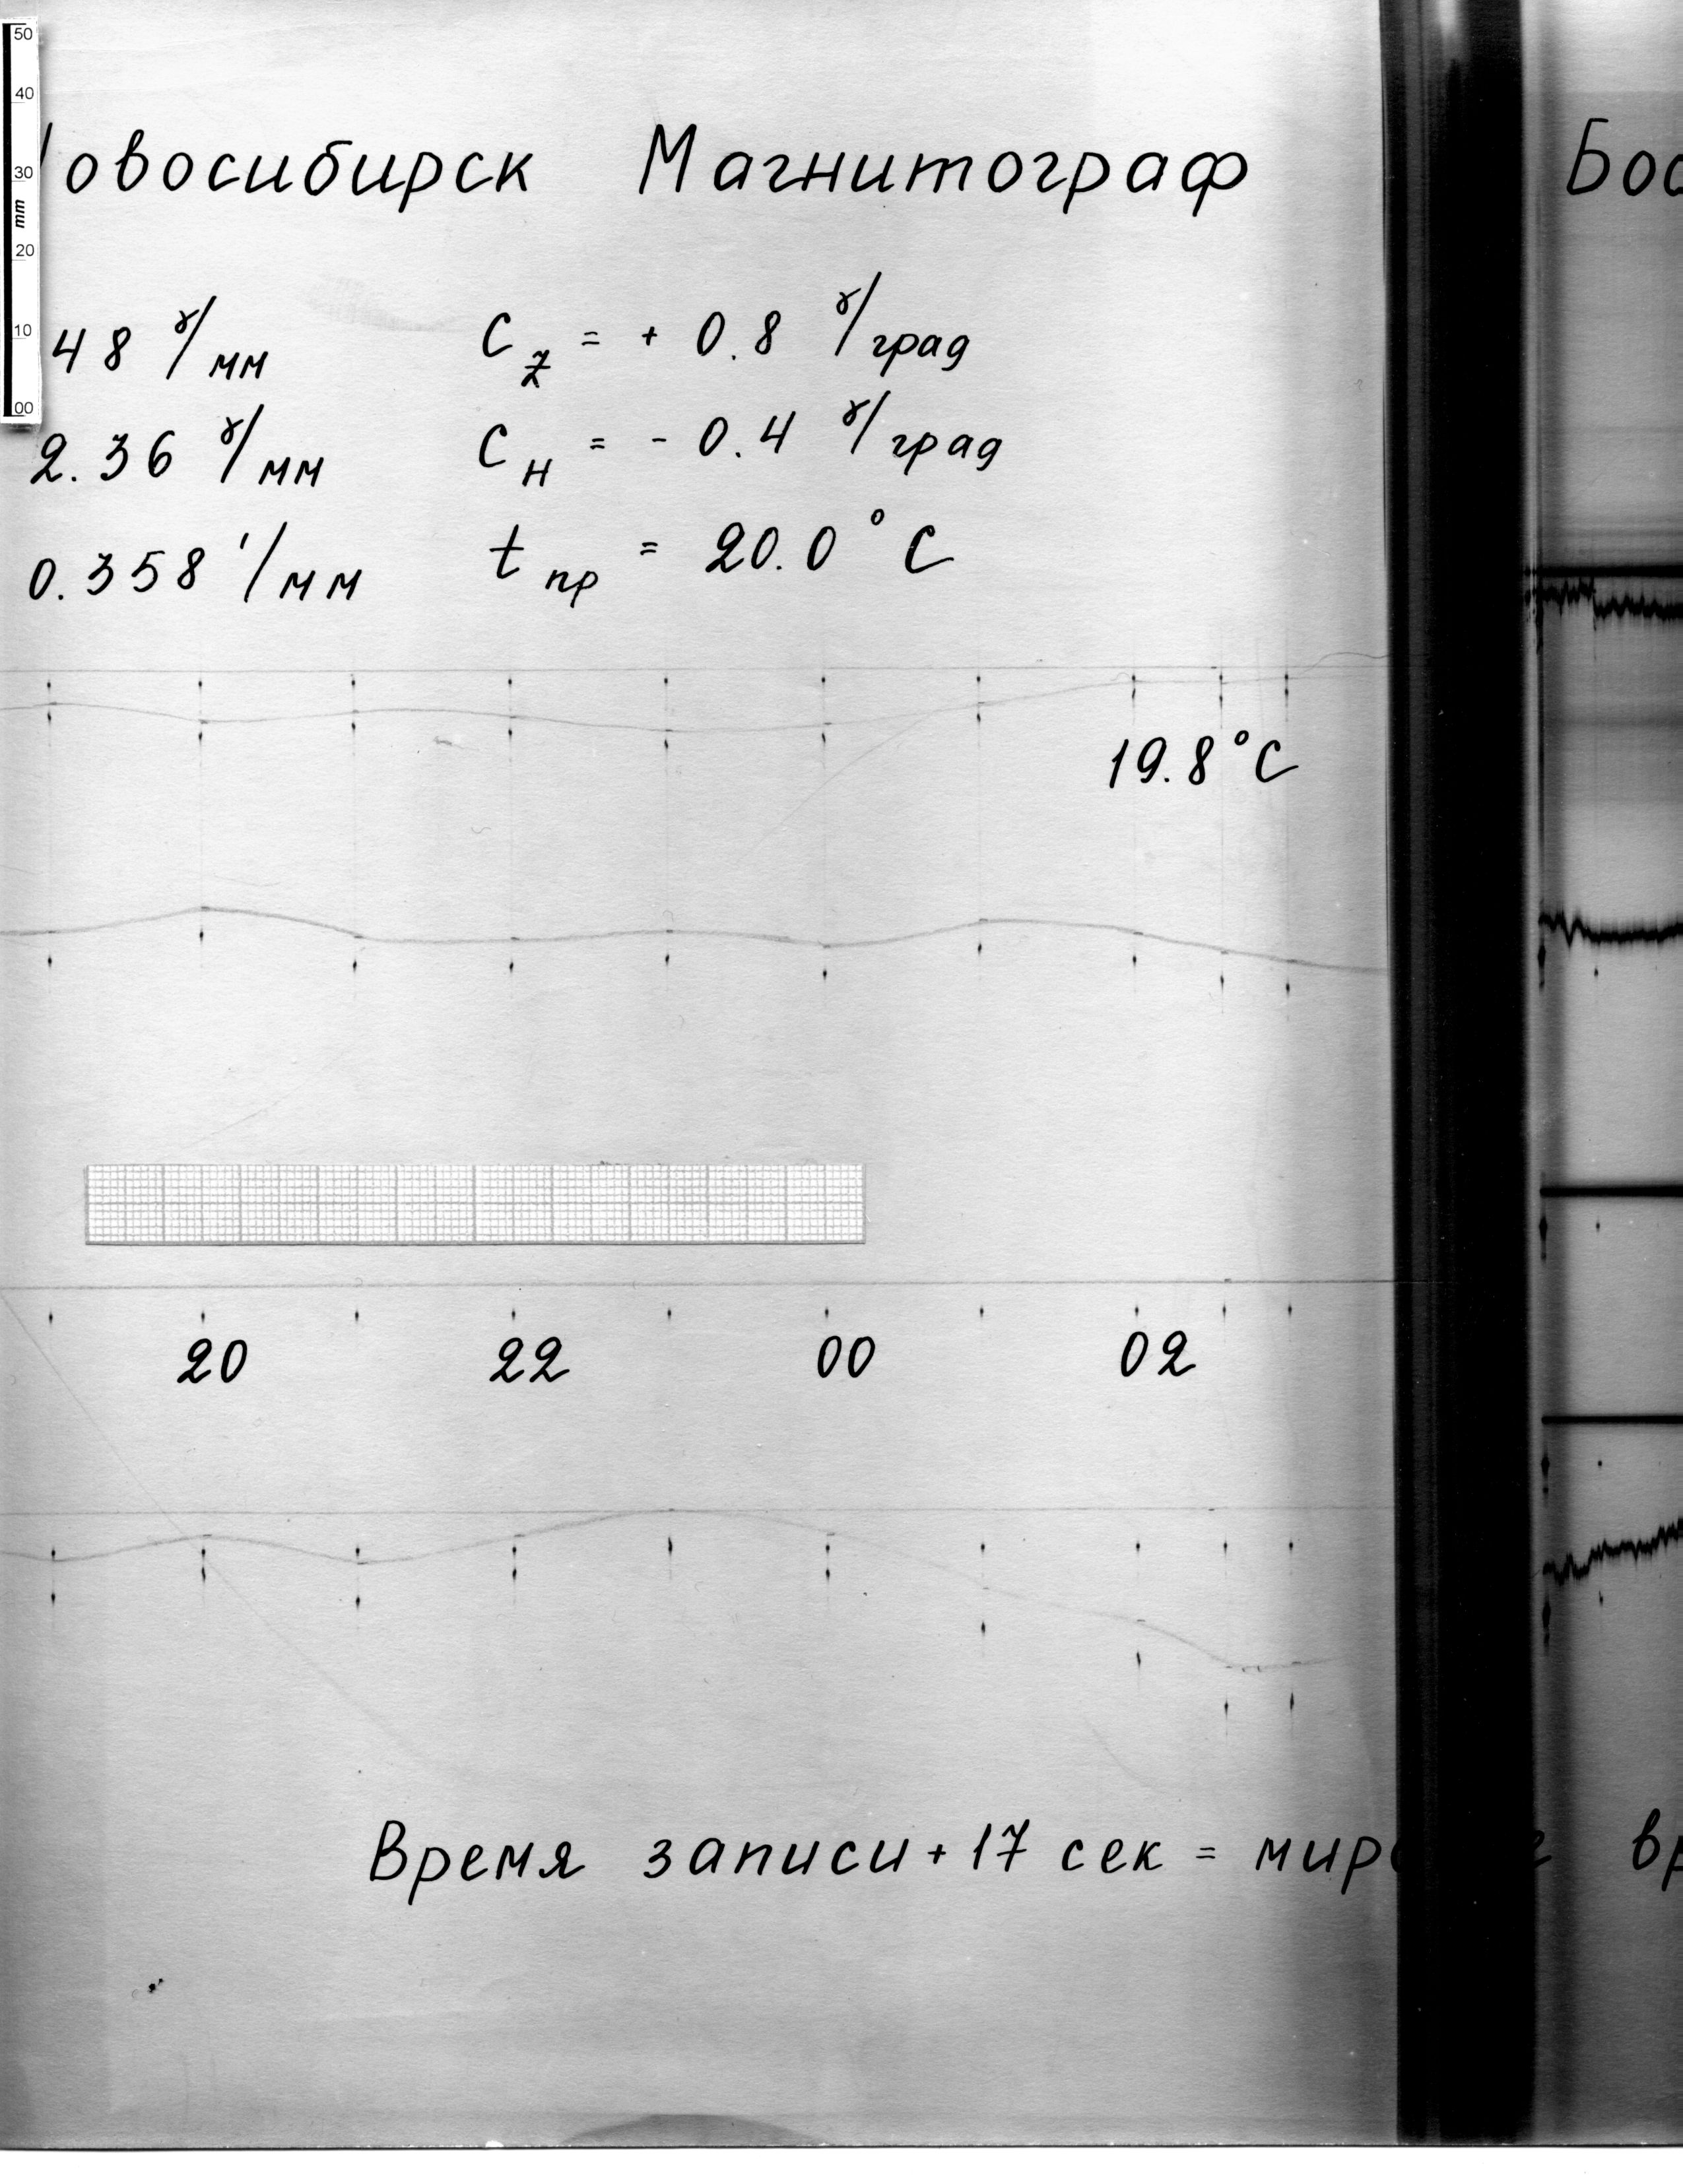 50
40
30
mm
20
10
00
овосибирск Магнитограф
48 γ/мм C_Z = + 0.8 γ/град
2.36 γ/мм C_H = - 0.4 γ/град
0.358 '/мм t_пр = 20.0°C
19.8°C
20 22 00 02
Время записи + 17 сек =